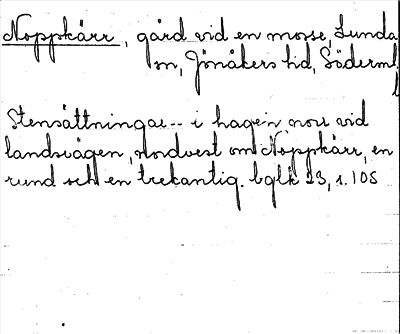 Noppkärr, gård vid en mosse, Lunda
sn, Jönåkers hd, Söderml.
Stensättningar -- i hagen norr vid
landsvägen, nordvest om Noppkärr, en
rund och en trekantig. bglk 23, s. 105